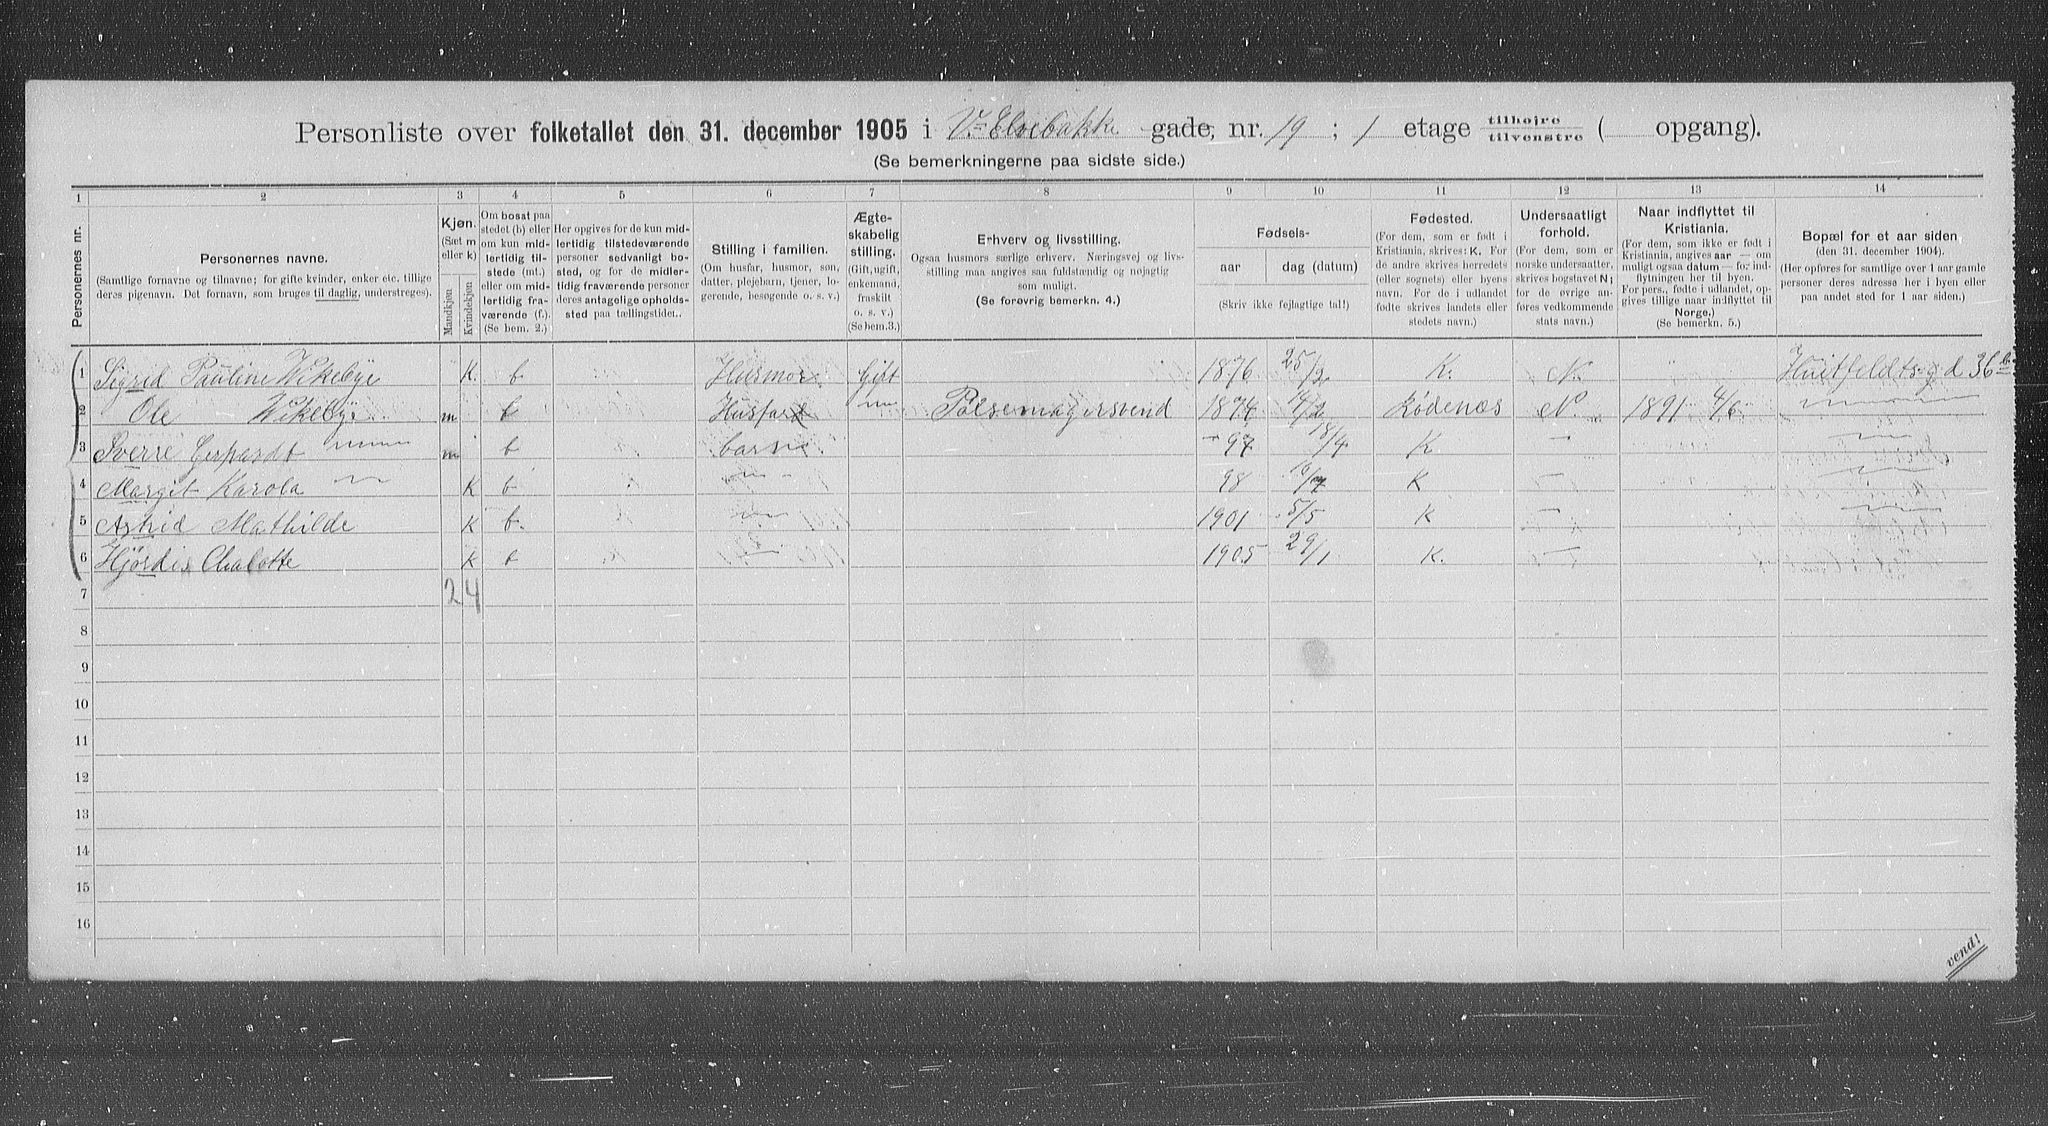 Personliste over folketallet den 31. december 1905 i V. Elvebakke gade, nr. 19 ; 1 etage tilhøjre tilvenstre ( opgang).
(Se bemerkningerne paa sidste side.)
1 2 3 4 5 6 7 8 9 10 11 12 13 14
Personernes nr.
Personernes navne.
(Samtlige fornavne og tilnavne; for gifte kvinder, enker etc. tillige
deres pigenavn. Det fornavn, som bruges til daglig, understreges).
Kjøn.
(Sæt m
eller k)
Mandkjøn
Kvindekjøn
Om bosat paa
stedet (b) eller
om kun mid-
lertidig til-
stede (mt.)
eller om mid-
lertidig fra-
værende (f.).
(Se bem. 2.)
Her opgives for de kun mid-
lertidig tilstedeværende
personer sedvanligt bo-
sted, og for de midler-
tidig fraværende personer
deres antagelige opholds-
sted paa tællingstidet.
Stilling i familien.
(Om husfar, husmor, søn,
datter, plejebarn, tjener, lo-
gerende, besøgende o. s. v.)
Ægte-
skabelig
stilling.
(Gift, ugift,
enkemand,
fraskilt
o. s. v.)
(Se bem.3.)
Erhverv og livsstilling.
Ogsaa husmors særlige erhverv. Næringsvej og livs-
stilling maa angives saa fuldstændig og nøjagtig
som muligt.
(Se forøvrig bemerkn. 4.)
Fødsels-
aar dag (datum)
(Skriv ikke fejlagtige tal!)
Fødested.
(For dem, som er født i
Kristiania, skrives: K. For
de andre skrives herredets
(eller sognets) eller byens
navn. For de i udlandet
fødte skrives landets eller
stedets navn.)
Undersaatligt
forhold.
(For dem, som er
norske undersaatter,
skrives bogstavet N;
for de øvrige an-
føres vedkommende
stats navn.)
Naar indflyttet til
Kristiania.
(For dem, som ikke er født i
Kristiania, angives aar — om
muligt ogsaa datum — for ind-
flytningen her til byen.
For pers., fødte i udlandet, op-
gives tillige naar indflyttet til
Norge.)
(Se bemerkn. 5.)
Bopæl for et aar siden
(den 31. december 1904).
(Her opføres for samtlige over 1 aar gamle
personer deres adresse her i byen eller
paa andet sted for 1 aar siden.)
1 Sigrid Pauline Wikebye K. b Husmor Gift 1876 25/2 K. N. Huitfeldts gd 36 b
2 Ole Wikebye m b Husfar " Pølsemagersvend 1874 14/2 Rødenæs N. 1891 4/6 "
3 Sverre Gerhardt " m b barn - 97 18/4 K - "
4 Margit Karola " K b " 98 10/7 K - "
5 Astrid Mathilde K b. " 1901 5/5 K - "
6 Hjørdis Chalotte K b " 1905 29/1 K. -
7 2 4
8
9
10
11
12
13
14
15
16
vend!